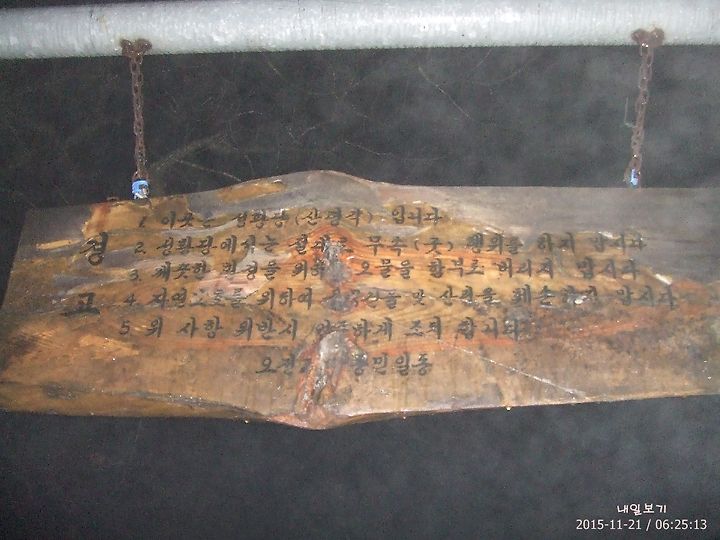 경고
1. 이곳은 성황당(산령각) 입니다
2. 성황당에서는 절대로 무속(굿) 행위를 하지 맙시다
3. 깨끗한 환경을 위해 오물을 함부로 버리지 맙시다
4. 자연보호를 위하여 및 산천을 훼손하지 맙시다
5 위 사항 위반시 조치 합시다
주민일동
내일보기
2015-11-21 / 06:25:13